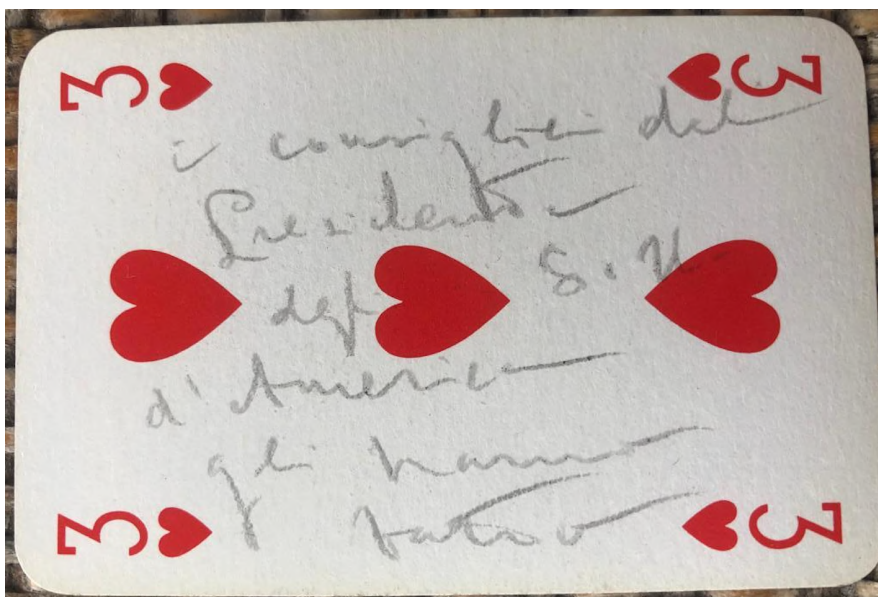 3 3
i consiglieri del
Presidente
degli S.U.
d'America
gli hanno
fatto
3 3